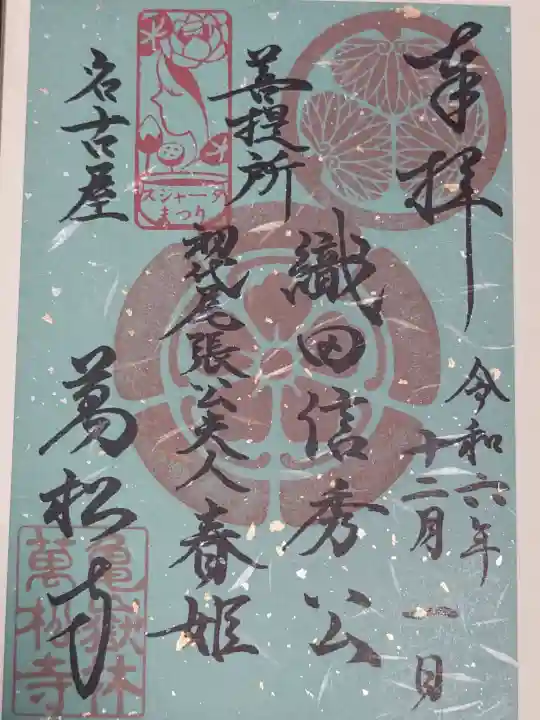 奉拝
令和六年
十二月一日
織田信秀公
菩提所
初代尾張公夫人春姫
スジャータ
まつり
名古屋
萬松寺
亀嶽林
萬松寺